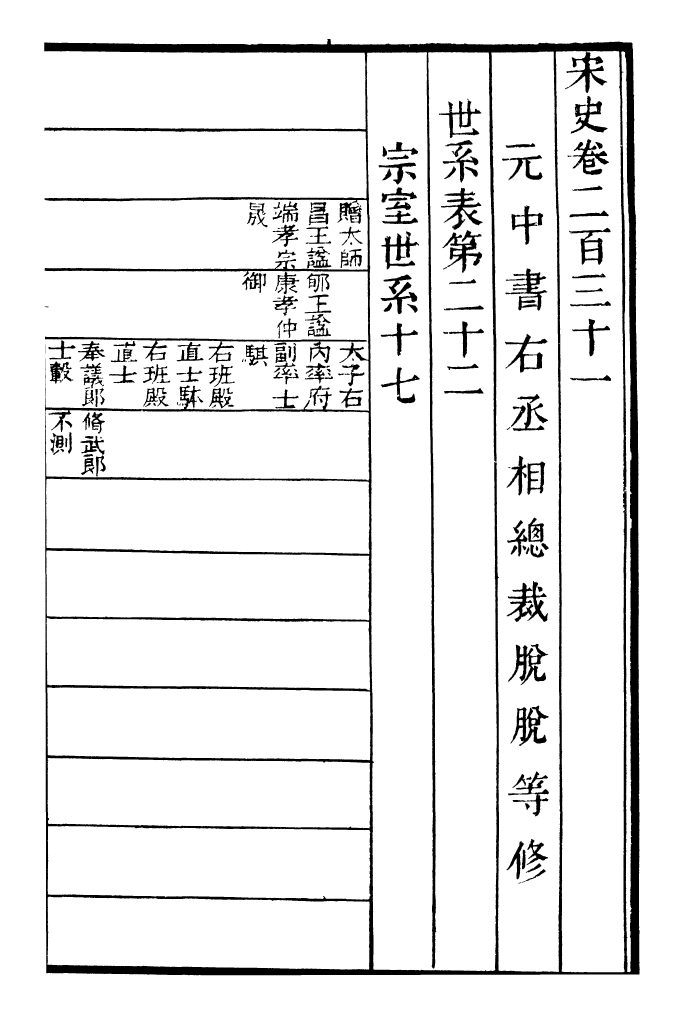 宋史卷二百三十一
元中書右丞相總裁脫脫等修
世系表第二十二
宗室世系十七
贈太師
昌王謚
端孝宗
晟
郇王謚
康孝仲
御
太子右
內率府
副率士
騏
右班殿
直士䮀
右班殿
直士
奉議郎
士轂
脩武郎
不測